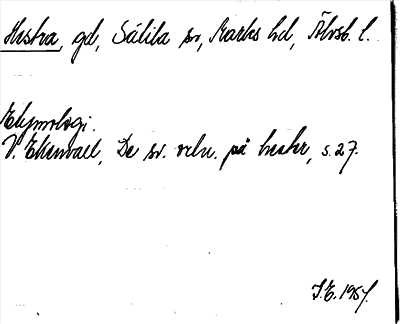 Hestra, gd, Sätila sn, Marks hd, Älvsb. l.
Etymologi.
V. Ekenvall, De sv. ortn. på hestr, s. 27.
I.E. 1957.